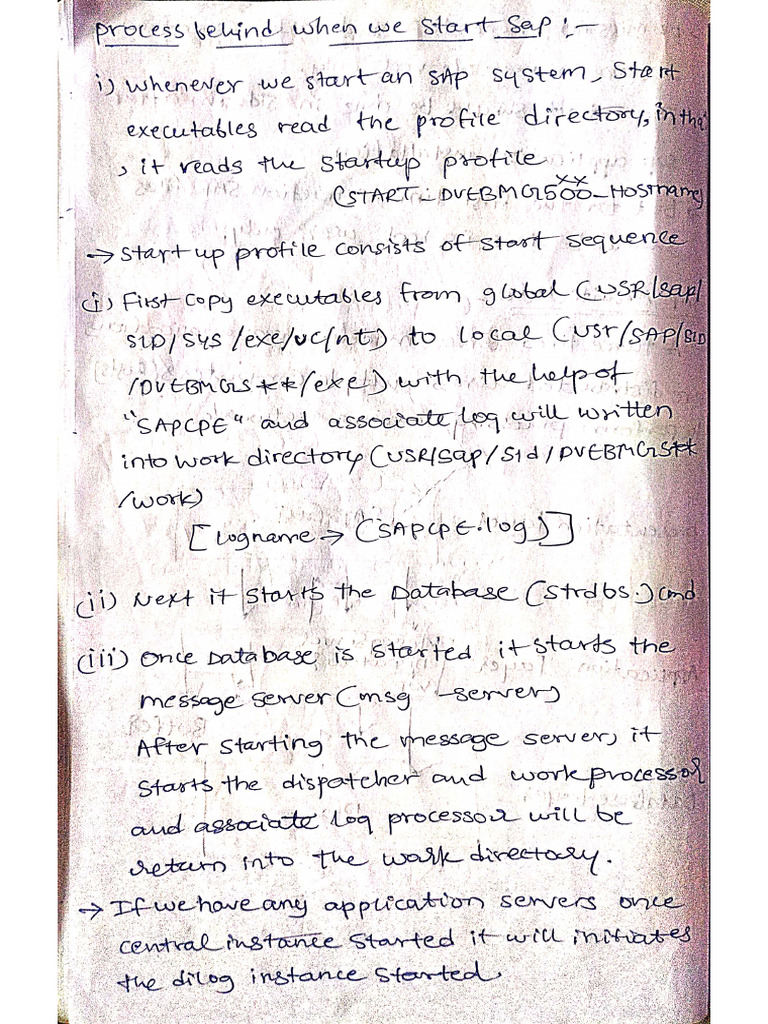 process behind when we start sap :-
i) whenever we start an SAP system, Start
executables read the profile directory, in tha
, it reads the startup profile
(START_DVEBMGS00_Hostname)
xx
→ Start up profile consists of start sequence
(i) First copy executables from global (USR/sap/
SID/SYS/exe/uc/nt) to local (usr/SAP/SID
/DVEBMGS**/exe/) with the help of
"SAPCPE" and associate log will written
into work directory (USR/sap/SId/DVEBMGS**
/work)
[logname → (SAPCPE.log)]
(ii) Next it starts the Database (strdbs.)cmd
(iii) Once Database is started it starts the
message server (msg -server)
After starting the message server, it
starts the dispatcher and work processor
and associate log processor will be
return into the work directory.
→ If we have any application servers once
central instance started it will initiates
the dilog instance started.